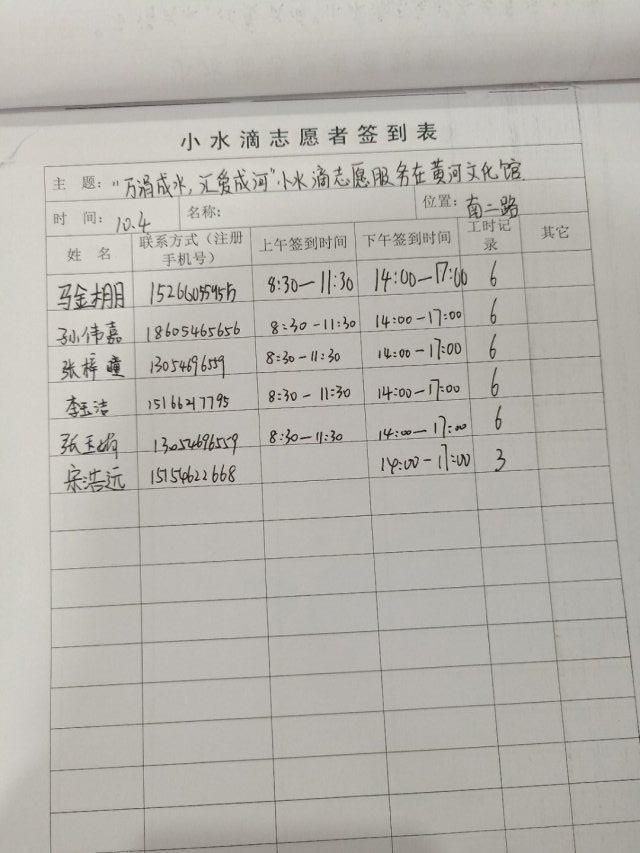 小水滴志愿者签到表
主 题: "万涓成水,汇爱成河"小水滴志愿服务在黄河文化馆
时 间: 10.4 名称: 位置: 南二路
姓 名 联系方式(注册手机号) 上午签到时间 下午签到时间 工时记录 其它
马金棚 8:30—11:30 14:00—17:00 6
孙伟嘉 18605465656 8:30—11:30 14:00—17:00 6
张梓瞳 13054696559 8:30—11:30 14:00—17:00 6
李玉洁 15166217795 8:30—11:30 14:00—17:00 6
张玉 13054696559 8:30—11:30 14:00—17:00 6
宋浩远 15154622668 14:00—17:00 3